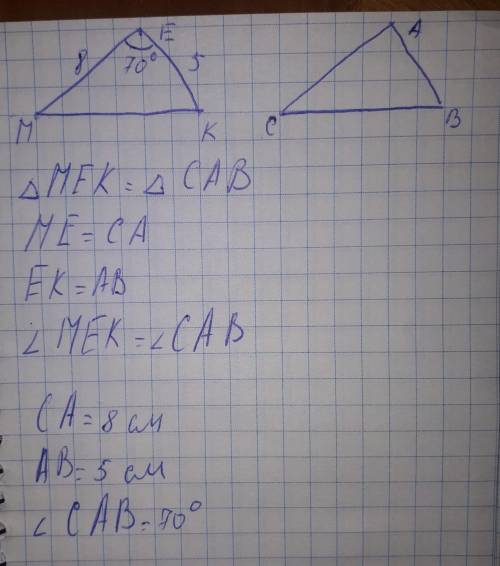 E A
8 70° 5
M K C B
△ MEK = △ CAB
ME = CA
EK = AB
∠ MEK = ∠ CAB
CA = 8 см
AB = 5 см
∠ CAB = 70°